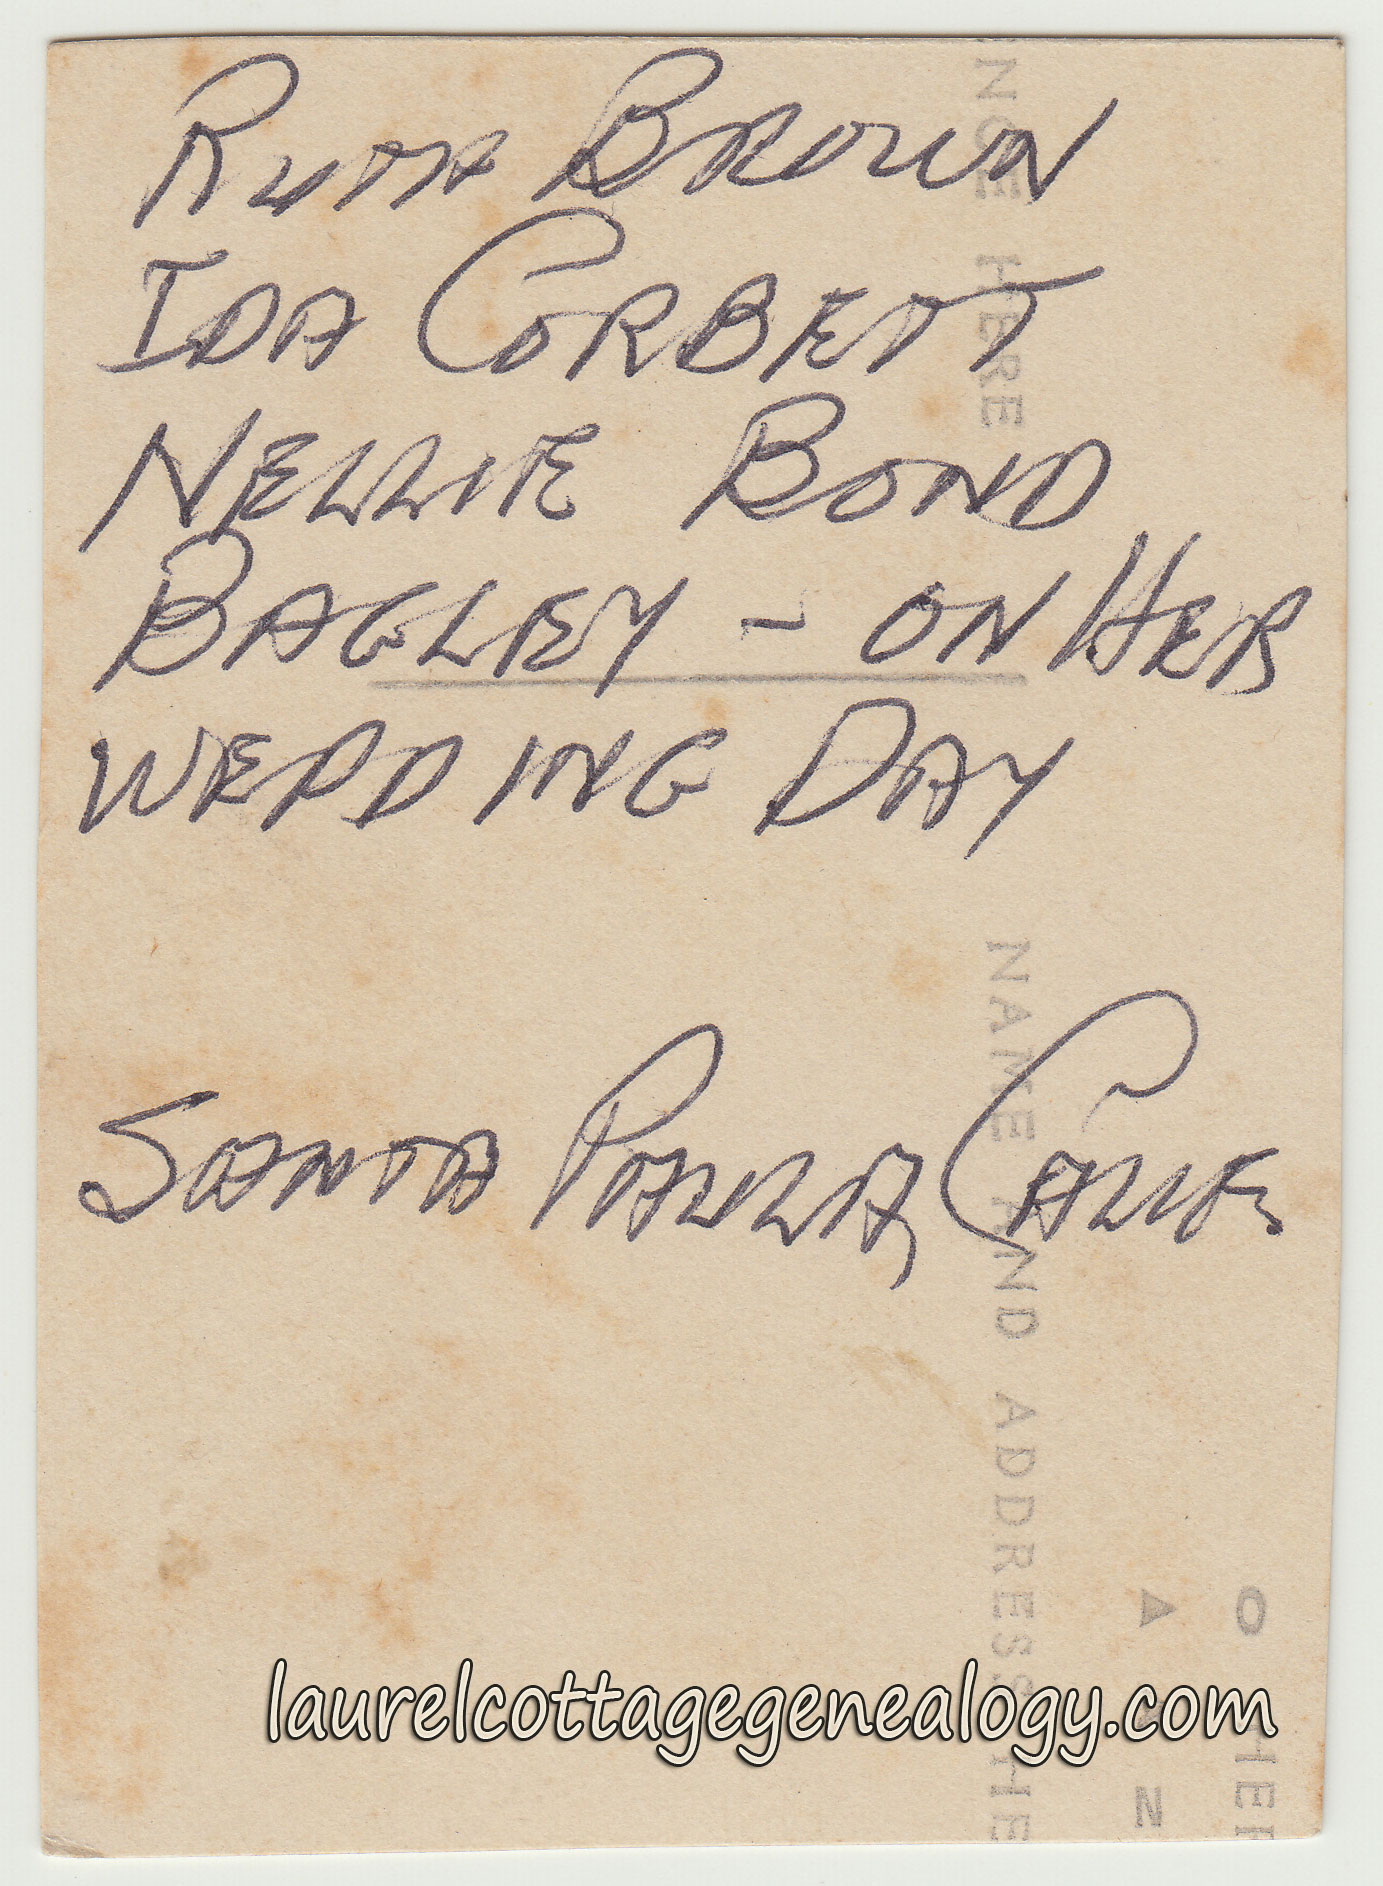 Ruth Brown
Ida Corbett
Nellie Bond
Bagley - on Her
Wedding Day
Santa Paula, Calif.
NCE HERE
NAME AND ADDRESS HE
A N
O HER
laurelcottagegenealogy.com